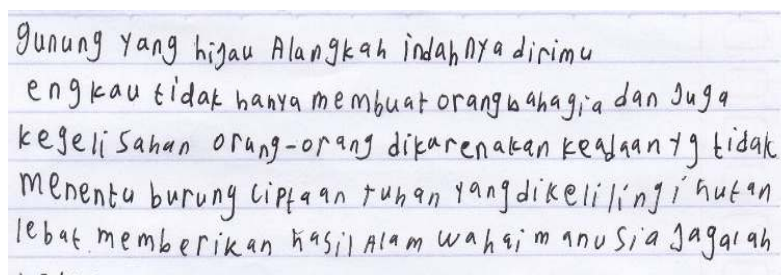 gunung yang hijau Alangkah indahnya dirimu
engkau tidak hanya membuat orang bahagia dan Juga
kegelisahan orang-orang dikarenakan keadaan yg tidak
menentu burung ciptaan tuhan yang dikelilingi hutan
lebat memberikan hasil Alam wahai manusia Jagalah